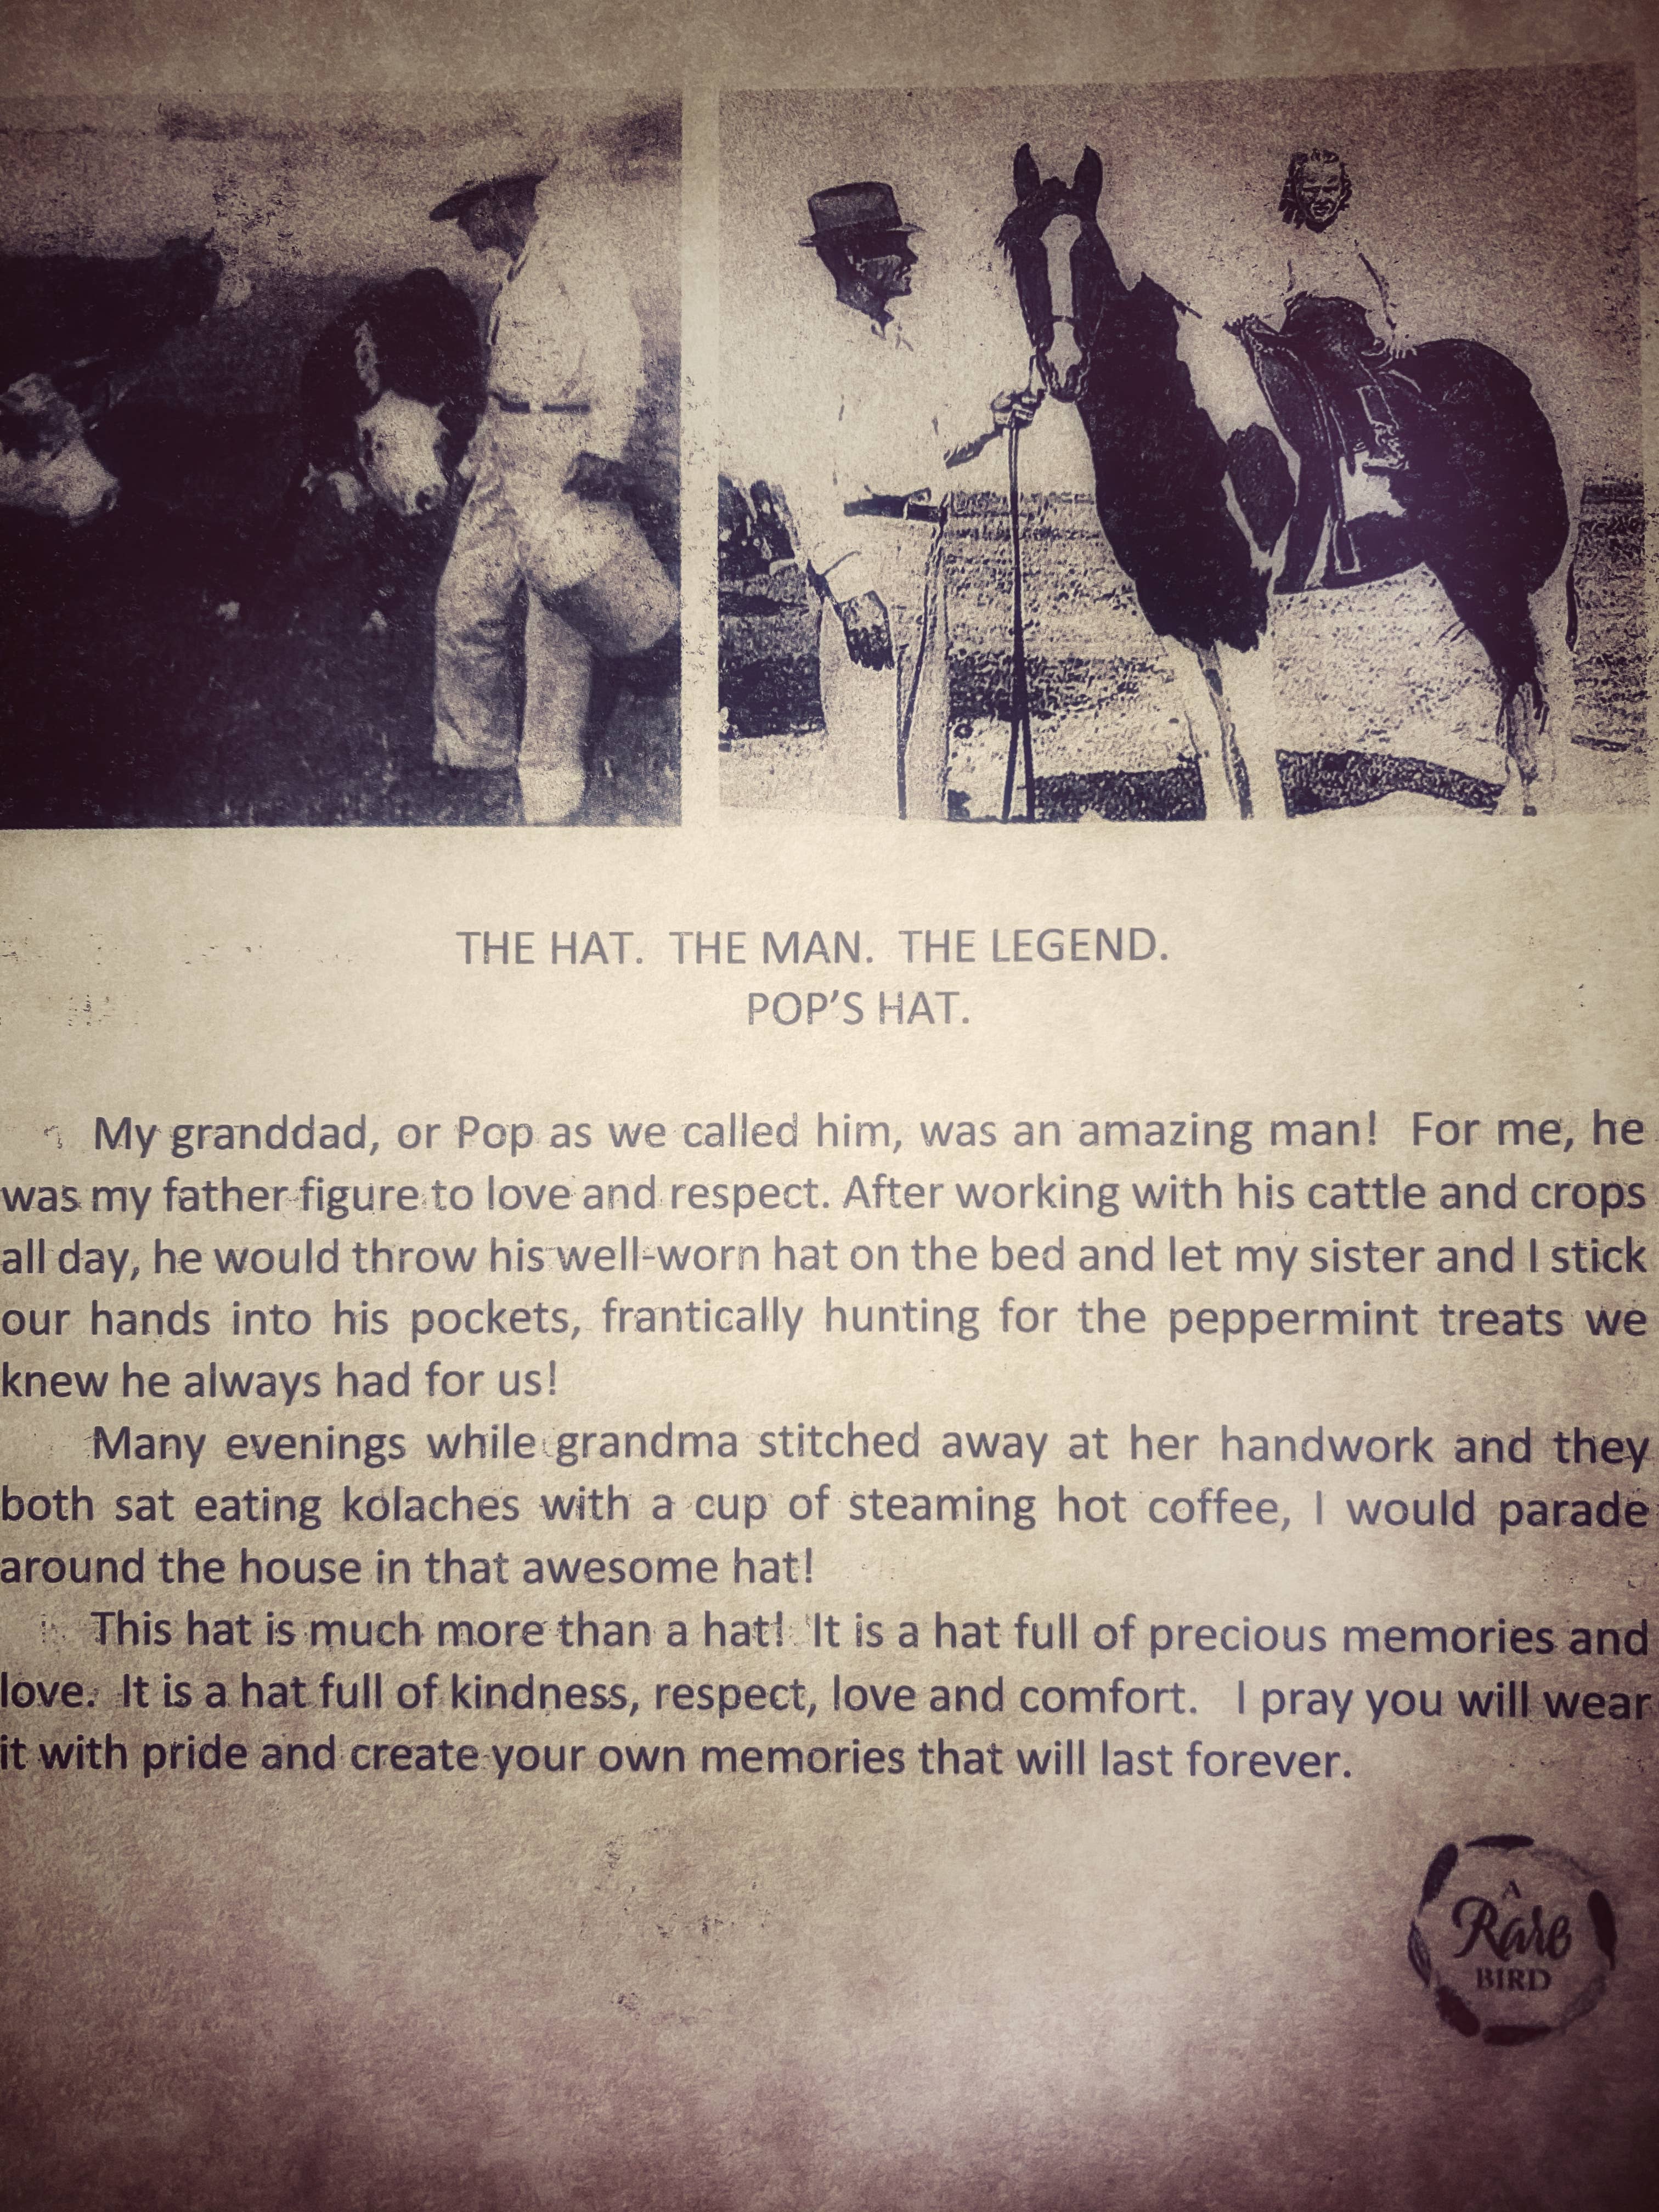 THE HAT.  THE MAN.  THE LEGEND.
POP'S HAT.
My granddad, or Pop as we called him, was an amazing man!  For me, he
was my father figure to love and respect. After working with his cattle and crops
all day, he would throw his well-worn hat on the bed and let my sister and I stick
our hands into his pockets, frantically hunting for the peppermint treats we
knew he always had for us!
Many evenings while grandma stitched away at her handwork and they
both sat eating kolaches with a cup of steaming hot coffee, I would parade
around the house in that awesome hat!
This hat is much more than a hat!  It is a hat full of precious memories and
love.  It is a hat full of kindness, respect, love and comfort.   I pray you will wear
it with pride and create your own memories that will last forever.
A
Rare
BIRD